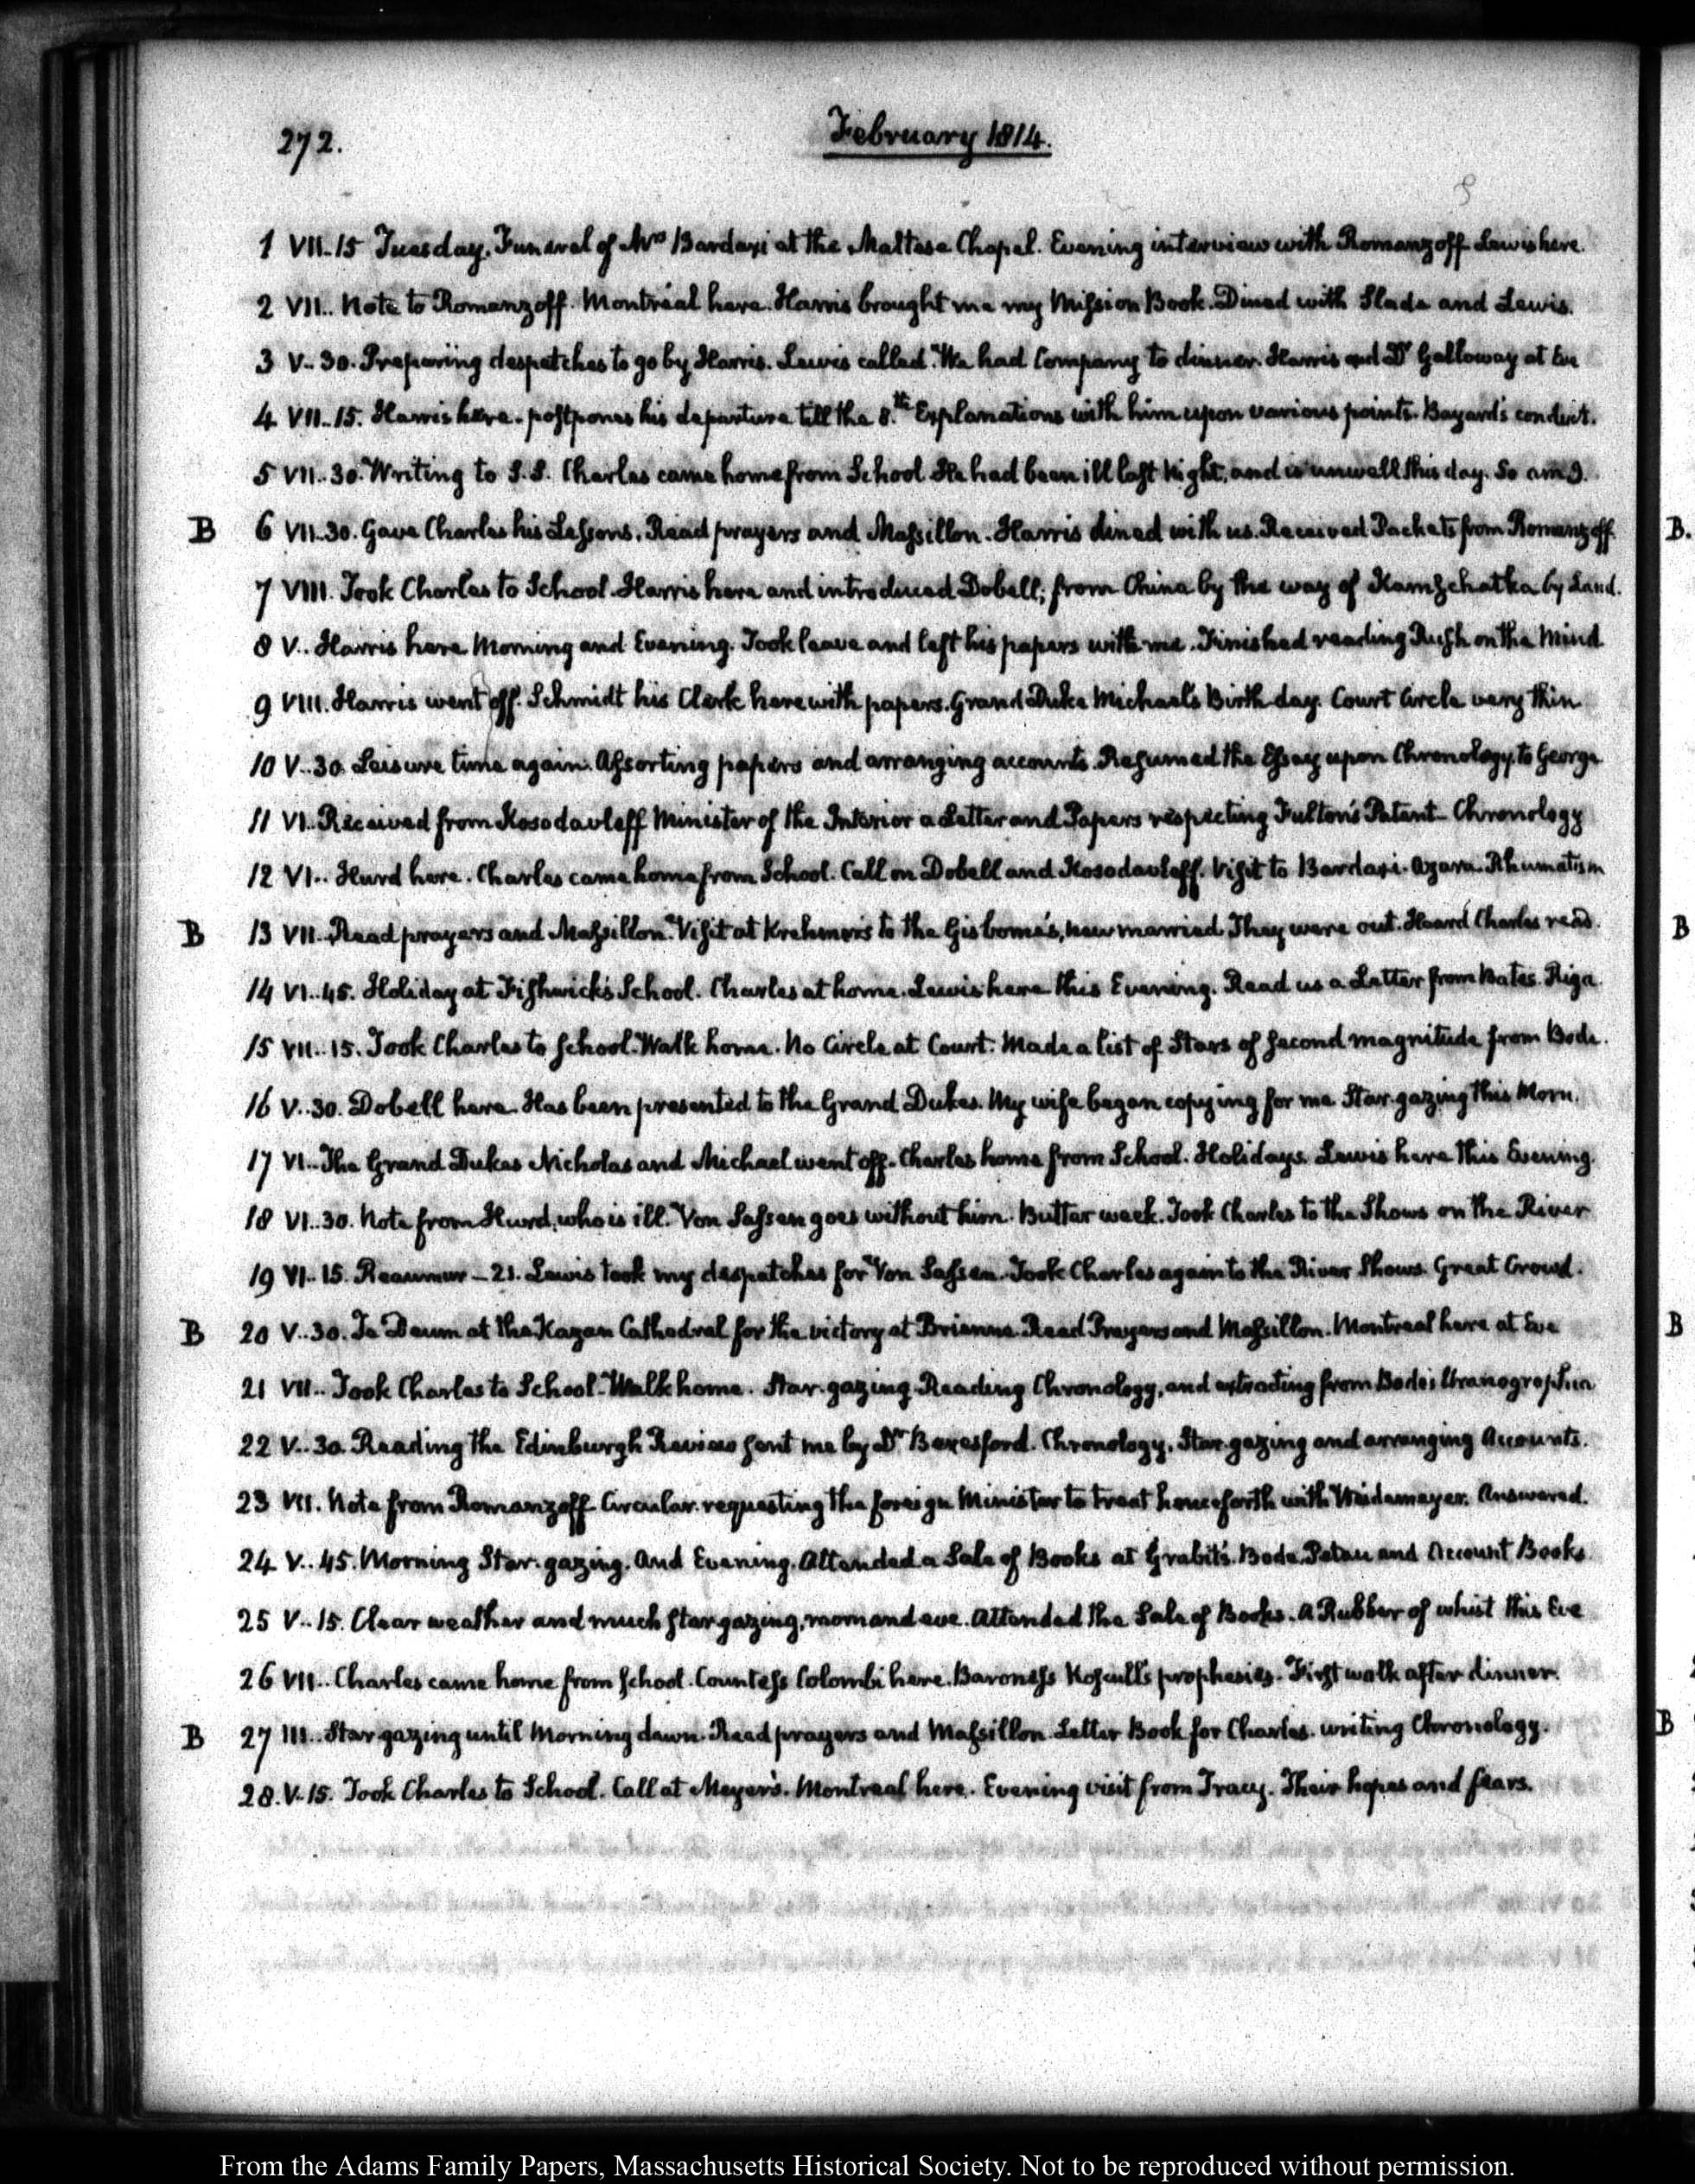 272.
February 1814.
1 VII..15 Tuesday. Funeral of Mrs Bardaxi at the Maltese Chapel. Evening interview with Romanzoff. Lewis here.
2 VII.. Note to Romanzoff. Montréal here. Harris brought me my Mission Book. Dined with Slade and Lewis.
3 V..30. Preparing despatches to go by Harris. Lewis called. We had Company to dinner. Harris and Dr Galloway at Eve
4 VII..15. Harris here. postpones his departure till the 8.th Explanations with him upon various points. Bayard's conduct.
5 VII..30. Writing to S.S. Charles came home from School. He had been ill last Night, and is unwell this day. So am I.
B 6 VII..30. Gave Charles his Lessons. Read prayers and Massillon. Harris dined with us. Received Packets from Romanzoff. B.
7 VIII. Took Charles to School. Harris here and introduced Dobell; from China by the way of Kamschatka by Land.
8 V.. Harris here Morning and Evening. Took leave and left his papers with me. Finished reading Rush on the Mind
9 VIII. Harris went off. Schmidt his Clerk here with papers. Grand Duke Michael's Birth day. Court Circle very thin
10 V..30. Leisure time again. Assorting papers and arranging accounts. Resumed the Essay upon Chronology, to George
11 VI.. Received from Kosodavleff Minister of the Interior a Letter and Papers respecting Fulton's Patent_ Chronology
12 VI.. Hurd here. Charles came home from School. Call on Dobell and Kosodavleff. Visit to Bardaxi. Azara. Rhumatism
B 13 VII.. Read prayers and Massillon. Visit at Krehmer's to the Gisborne's, new married. They were out. Heard Charles read. B
14 VI..45. Holiday at Fishwick's School. Charles at home. Lewis here this Evening. Read us a Letter from Bates. Riga.
15 VII..15. Took Charles to School. Walk home. No Circle at Court. Made a list of Stars of second magnitude from Bode.
16 V..30. Dobell here. Has been presented to the Grand Dukes. My wife began copying for me Star-gazing this Morn.
17 VI.. The Grand Dukes Nicholas and Michael went off. Charles home from School. Holidays. Lewis here this Evening.
18 VI..30. Note from Hurd, who is ill. Von Sassen goes without him. Butter week. Took Charles to the Shows on the River
19 VI..15. Reaumur _ 21. Lewis took my despatches for Von Sassen. Took Charles again to the River Shows. Great Crowd.
B 20 V..30. Te Deum at the Kazan Cathedral for the victory at Brienne. Read Prayers and Massillon. Montreal here at Eve B
21 VII.. Took Charles to School. Walk home. Star-gazing. Reading Chronology, and extracting from Bode's Uranographia
22 V..30. Reading the Edinburgh Review sent me by Dr Beresford. Chronology, Star-gazing and arranging Accounts.
23 VII. Note from Romanzoff Circular. requesting the foreign Minister to treat henceforth with Weidemeyer. Answered.
24 V..45. Morning Star-gazing. And Evening. Attended a Sale of Books at Grabit's. Bode. Petau and Account Books
25 V..15. Clear weather and much star-gazing, morn and eve. Attended the Sale of Books. A Rubber of whist this Eve
26 VII.. Charles came home from School. Countess Colombi here. Baroness Koscull's prophesies. First walk after dinner.
B 27 III.. Star-gazing until Morning dawn. Read prayers and Massillon. Letter Book for Charles. writing Chronology. B
28. V.15. Took Charles to School. Call at Meyer's. Montreal here. Evening visit from Tracy. Their hopes and fears.
From the Adams Family Papers, Massachusetts Historical Society. Not to be reproduced without permission.